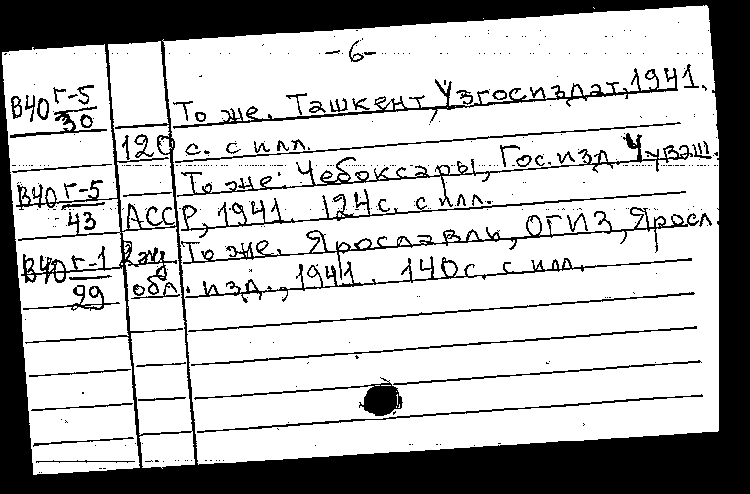 -6-
В40 Г-5/30 То же. Ташкент, Узгосиздат, 1941.
120 с. с илл.
В40 Г-5/43 То же. Чебоксары, Гос. изд. Чуваш.
АССР, 1941. 124 с. с илл.
В40 Г-1/29 2 экз То же. Ярославль, ОГИЗ, Яросл.
обл. изд., 1941. 140 с. с илл.